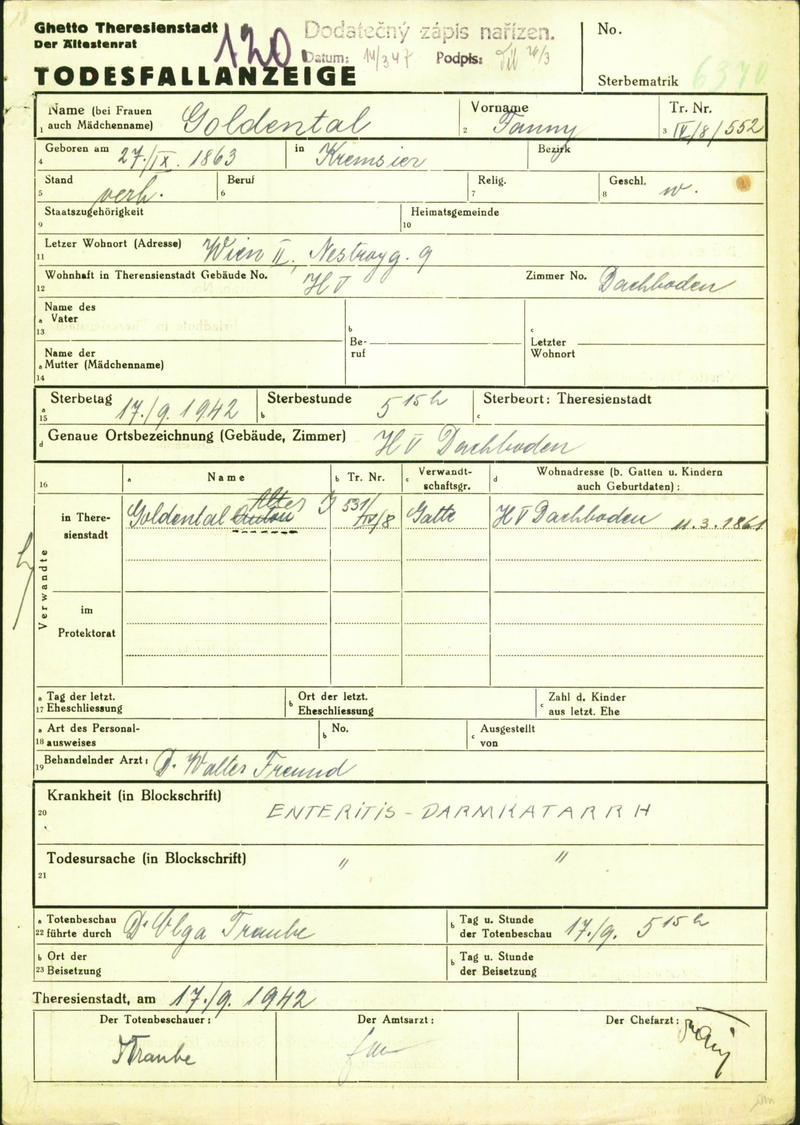 Ghetto Theresienstadt
Der Ältestenrat
120
Dodatečný zápis nařízen.
Datum: 14/3 47 Podpis:
No.
TODESFALLANZEIGE
Sterbematrik 6370
Name (bei Frauen auch Mädchenname) Goldental
Vorname Fanny
Tr. Nr. IV/8/552
1 2 3
Geboren am 27./IX. 1863 in Kremsier Bezirk
4
Stand verh. Beruf Relig. Geschl. w.
5 6 7 8
Staatszugehörigkeit Heimatsgemeinde
9 10
Letzer Wohnort (Adresse) Wien II, Nestroyg. 9
11
Wohnhaft in Therensienstadt Gebäude No. H V Zimmer No. Dachboden
12
Name des
a Vater
13
b Be-
ruf
c Letzter
Wohnort
Name der
a Mutter (Mädchenname)
14
Sterbetag 17./9. 1942 Sterbestunde 5 15 h Sterbeort: Theresienstadt
a 15 b c
d Genaue Ortsbezeichnung (Gebäude, Zimmer) H V Dachboden
16 a Name b Tr. Nr. c Verwandt-
schaftsgr. d Wohnadresse (b. Gatten u. Kindern
auch Geburtdaten):
Verwandte
in There-
sienstadt
Goldental Alter 531/IV/8 Gatte H V Dachboden 11.3.1861
im
Protektorat
a Tag der letzt.
17 Eheschliessung
b Ort der letzt.
Eheschliessung
c Zahl d. Kinder
aus letzt. Ehe
a Art des Personal-
18 ausweises
b No.
c Ausgestellt
von
19 Behandelnder Arzt: Dr. Walter Freund
Krankheit (in Blockschrift) ENTERITIS - DARMKATARRH
20
Todesursache (in Blockschrift) " "
21
a Totenbeschau
22 führte durch Dr Olga Traube
b Tag u. Stunde
der Totenbeschau 17./9. 5 15 h
b Ort der
23 Beisetzung
b Tag u. Stunde
der Beisetzung
Theresienstadt, am 17./9. 1942
Der Totenbeschauer: Der Amtsarzt: Der Chefarzt:
Traube